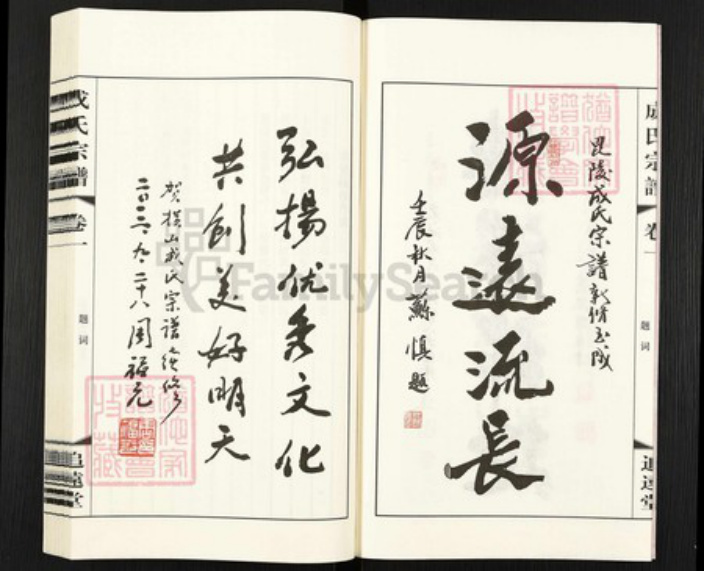 成氏宗譜
卷一
題詞
追遠堂
毘陵成氏宗譜新修告成
源遠流長
壬辰秋月蘇慎題
弘揚优秀文化
共创美好明天
贺横山成氏宗谱续修
二〇一三.九.二十八周福元
成氏宗譜
卷一
題詞
追遠堂
FamilySearch